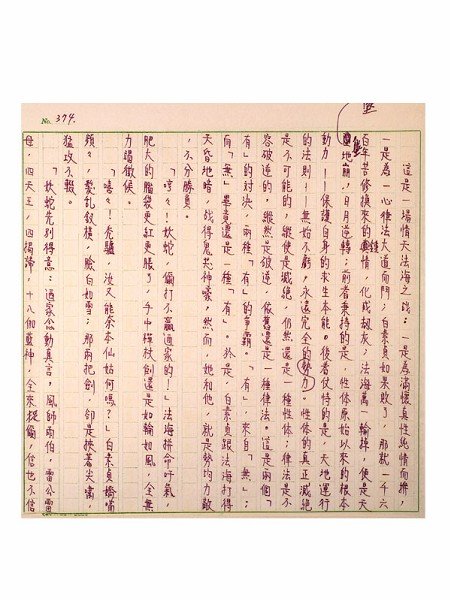 No. 374.
這是一場情天法海之戰:一是為滿懷真性純情而拚,
一是為一心律法大道而鬥;白素貞如果敗了,那就一千六
百年苦修換來的鍾情,化成劫灰;法海萬一輸掉,便是天
墮地崩,日月逆轉;前者秉持的是,性体原始以來的根本
動力——保護自身的求生本能。後者仗恃的是,天地運行
的法則——無始不虧,永遠完全的勢力。性体的真正滅絕
是不可能的,縱使是滅絕,仍然還是一種性体;律法是不
容破逆的,縱然是破逆,依舊還是一種律法。這是兩個「
有」的對決,兩種「有」的爭霸。「有」,來自「無」;
而「無」畢竟還是一種「有」。於是,白素貞跟法海打得
天昏地暗,戰得鬼愁神嚎,然而,她和他,就是勢均力敵
,不分勝負。
「哼々!妖蛇,儞打不贏道家的!」法海拼命吁氣,
肥大的腦袋更紅更脹了,手中禪杖劍還是如輪如風,全無
力竭徵侯。
「嘻々!禿驢,汝又能奈本仙姑何嗎?」白素貞嬌喘
頻々,鬢亂釵橫,臉白如雪;那兩把劍,卻是挾著尖嘯,
猛攻不輟。
「妖蛇先別得意:道家念動真言,風師雨伯,雷公雷
母,四天王,四揭諦,十八個藍神,全來捉儞,信也不信